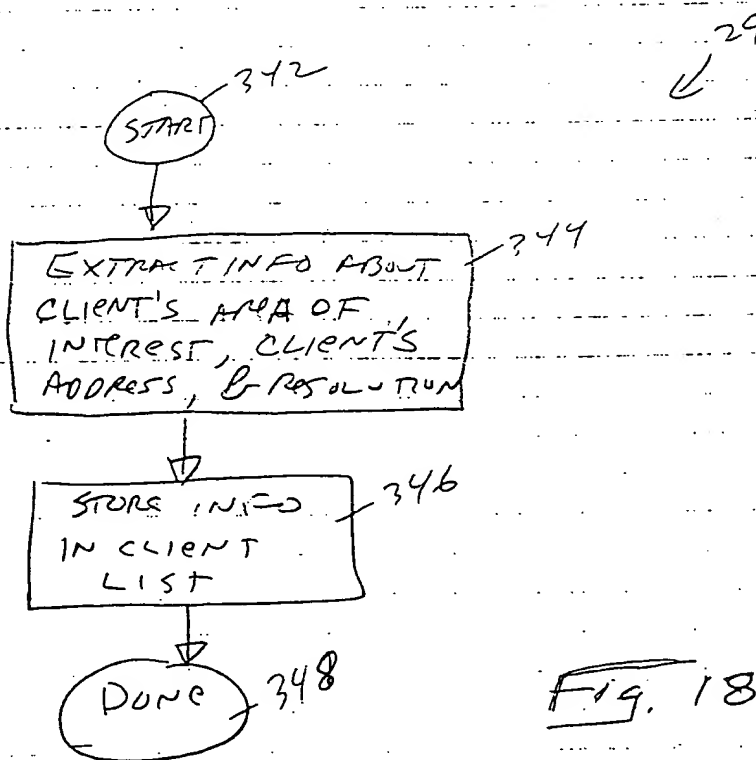 29
342
START
344
EXTRACT INFO ABOUT
CLIENT'S AREA OF
INTEREST, CLIENT'S
ADDRESS, & RESOLUTION
346
STORE INFO
IN CLIENT
LIST
DONE
348
Fig. 18